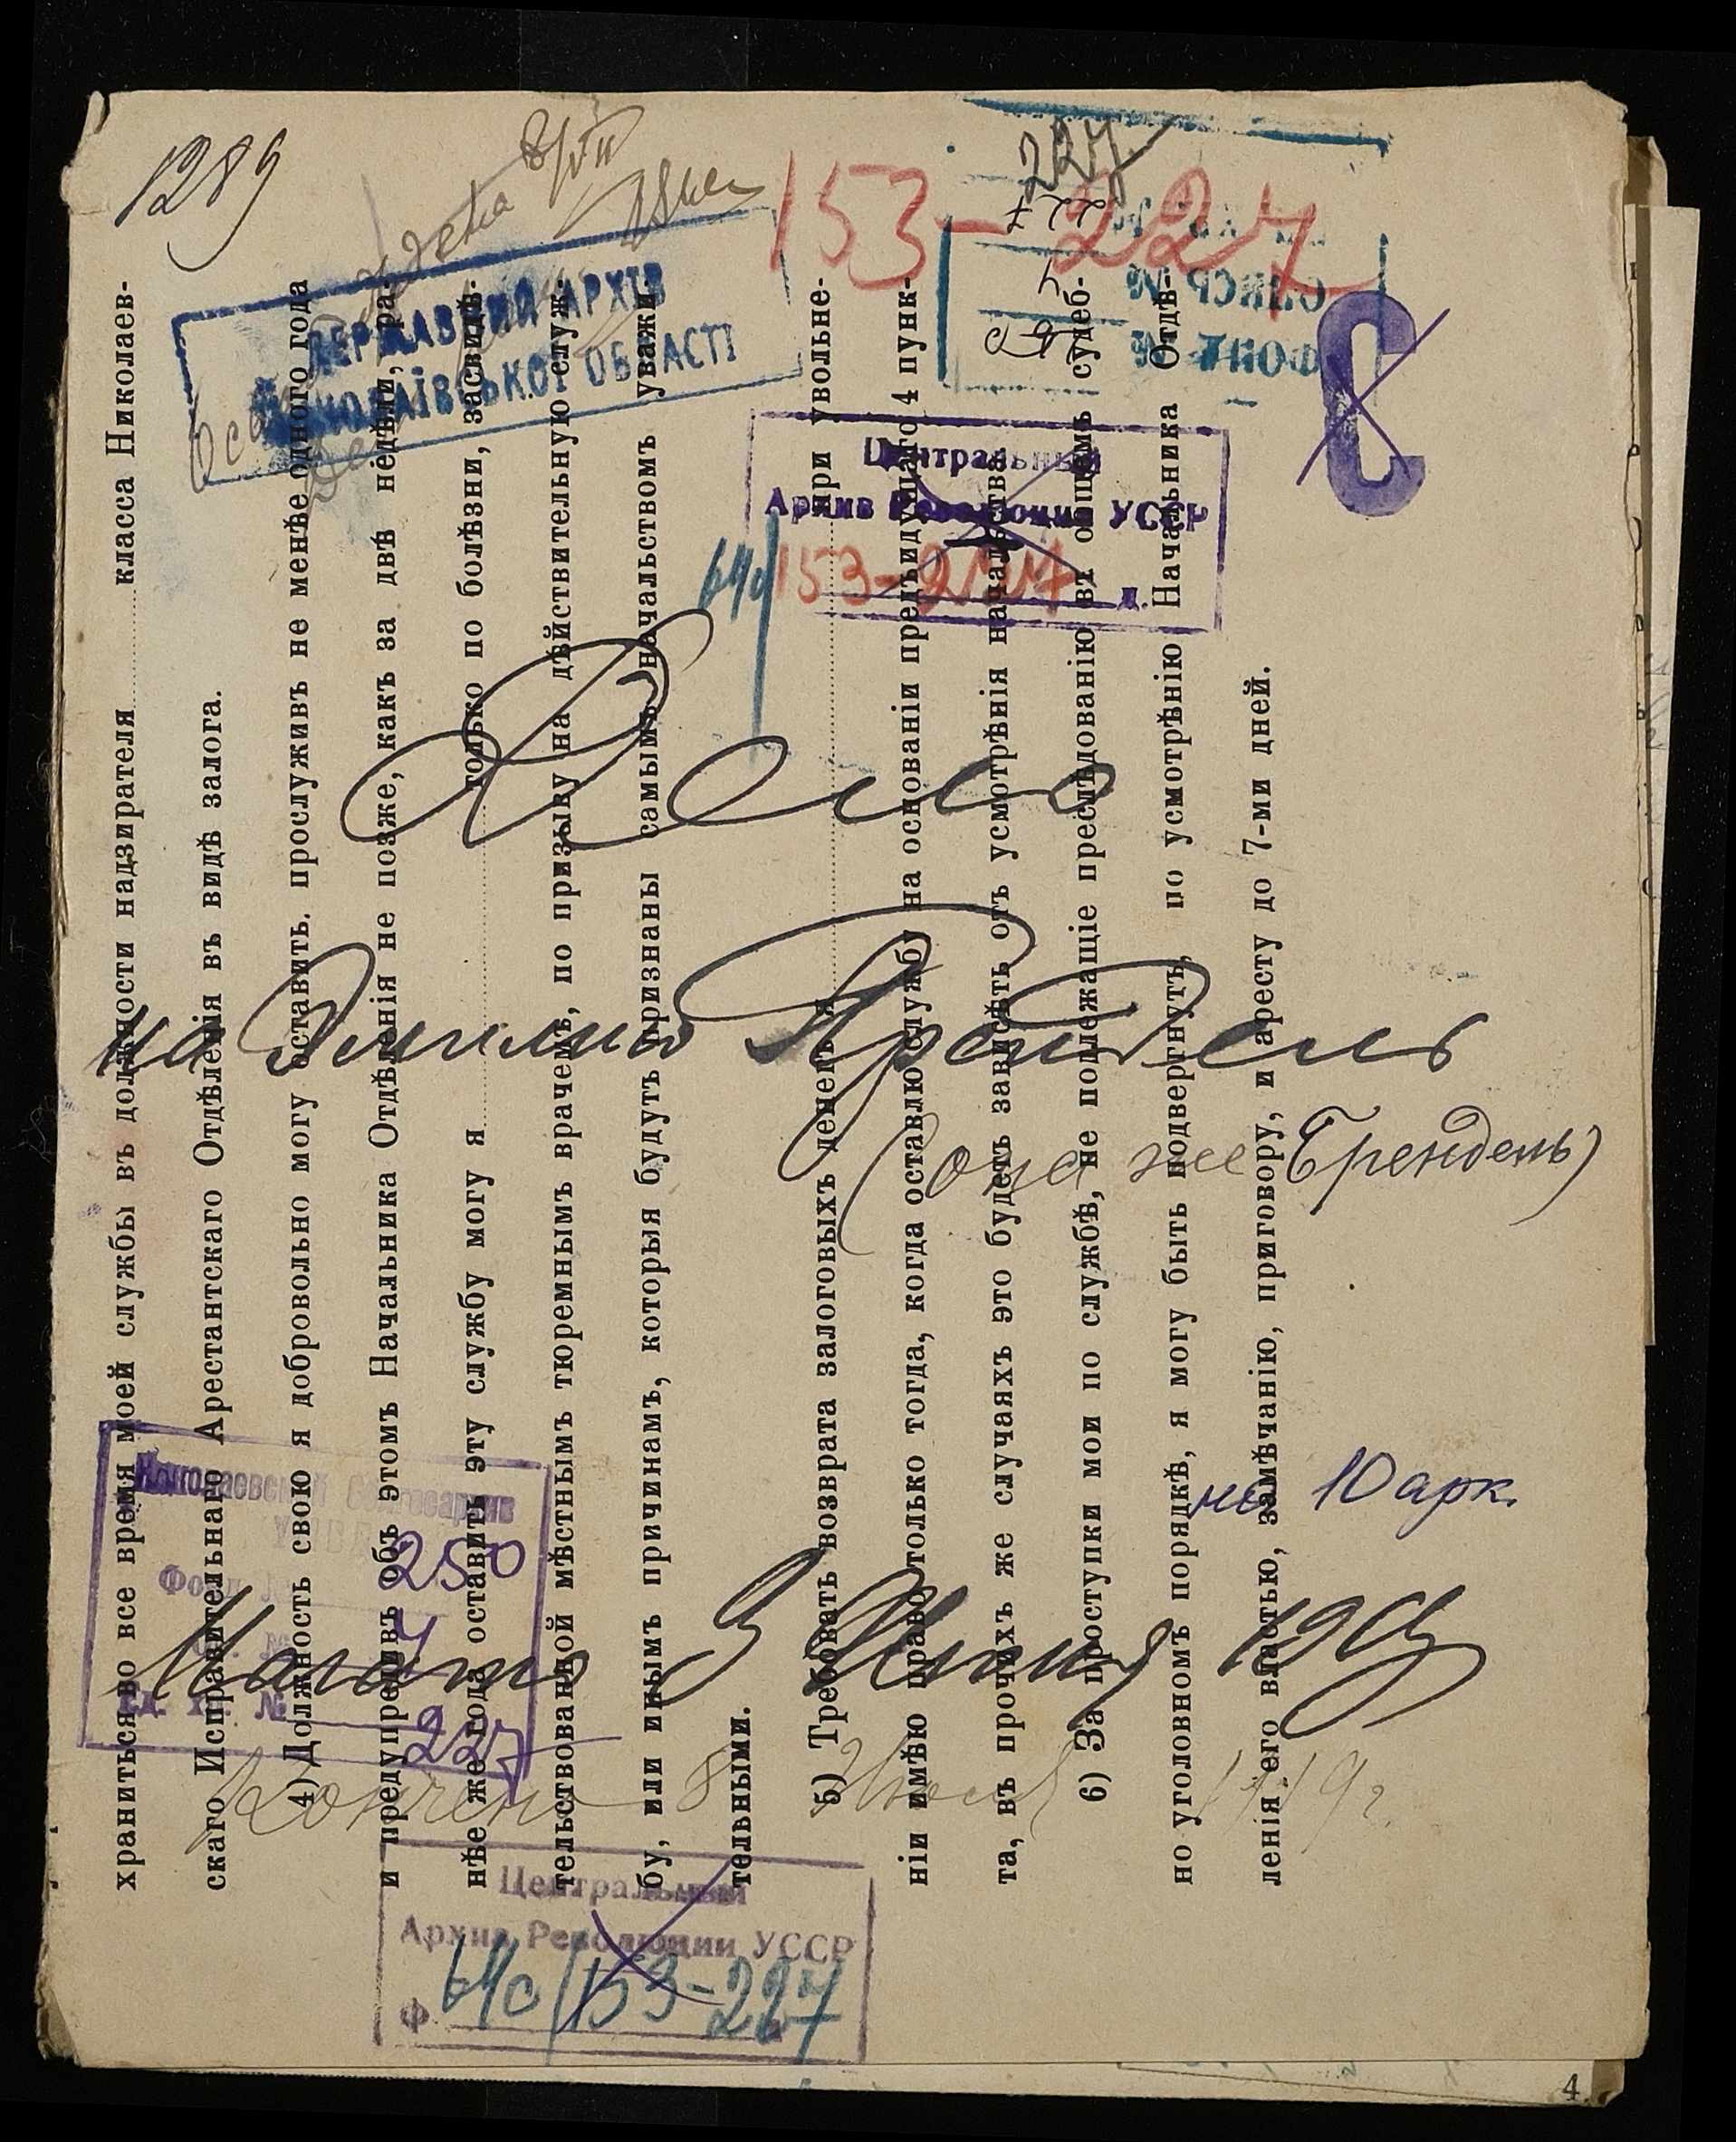 1289
8/VII
227
153-227
227
ДЕРЖАВНИЙ АРХІВ
МИКОЛАЇВСЬКОЇ ОБЛАСТІ
ОПИСЬ №
ФОНД №
С
Центральный
Архив Революции УССР
153-227 д.
Дело
на Эмилию Прендель
(она же Брендель)
на 10 арк.
Николаевский Облгосархив
УНВД
Фонд № 250
7
Ед. хр. № 227
Начато 3 Июня 1919
Кончено 8 Июля 1919 г.
Центральный
Архив Революции УССР
Ф. 64с/153-227
храниться во все время моей службы въ должности надзирателя ........ класса Николаев-
скаго Исправительнаго Арестантскаго Отдѣленія въ видѣ залога.
4) Должность свою я добровольно могу оставить, прослуживъ не менѣе одного года
и предупредивъ объ этомъ Начальника Отдѣленія не позже, какъ за двѣ недѣли, ра-
нѣе же года оставить эту службу могу я ........ только по болѣзни, засвидѣ-
тельствованной мѣстнымъ тюремнымъ врачемъ, по призыву на дѣйствительную служ-
бу, или инымъ причинамъ, которыя будутъ признаны самымъ начальствомъ уважи-
тельными.
5) Требовать возврата залоговыхъ денегъ я ........ при увольне-
ніи имѣю право только тогда, когда оставлю службу на основаніи предъидущаго 4 пунк-
та, въ прочихъ же случаяхъ это будетъ зависѣть отъ усмотрѣнія начальства.
6) За проступки мои по службѣ, не подлежащіе преслѣдованію въ общемъ судеб-
но уголовномъ порядкѣ, я могу быть подвергнутъ, по усмотрѣнію Начальника Отдѣ-
ленія его властью, замѣчанію, приговору, и аресту до 7-ми дней.
4